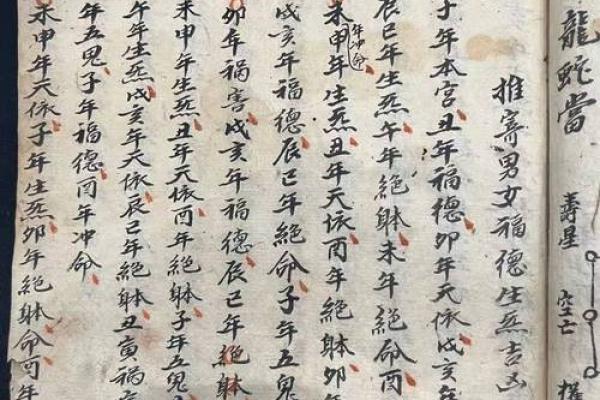 龍蛇當
壽星
空亡
推寄男女福德生炁吉凶
子年本宮丑年福德卯年天依戌亥年
辰巳年生炁午年絕躰未年絕命酉
未申年生炁丑年天依酉年絕躰卯年
年冲命
戌亥年福德辰巳年絕命子年五鬼
卯年禍害戌亥年福德辰巳年絕躰
未申年生炁丑年天依酉年絕躰子年五鬼
午年生炁戌亥年天依辰巳年絕躰丑寅禍
年五鬼子年福德酉年冲命
未申年天依子年生炁卯年絕躰命酉年